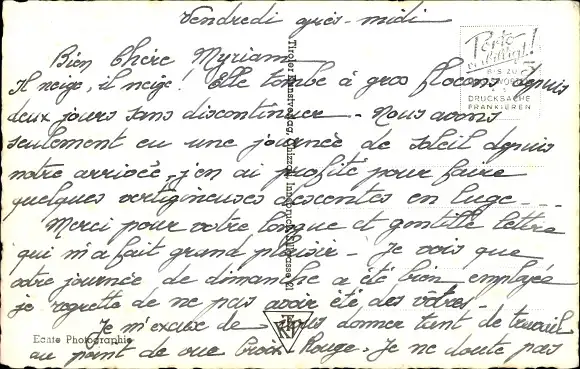 Vendredi après-midi
Bien Chère Myriam
Il neige, il neige! Elle tombe à gros flocons depuis
deux jours sans discontinuer - Nous avons
seulement eu une journée de soleil depuis
notre arrivée, j'en ai profité pour faire
quelques vertigineuses descentes en luge - - -
Merci pour votre longue et gentille lettre
qui m'a fait grand plaisir - Je vois que
votre journée de dimanche a été bien employée
je regrette de ne pas avoir été des vôtres -
Je m'excuse de vous donner tant de travail
au point de vue Croix Rouge - Je ne doute pas
Porto
verbilligt!
BIS ZU 5
WORTE
DRUCKSACHE
FRANKIEREN
Tiroler Kunstverlag Chizzali, Innsbruck,
Echte Photographie